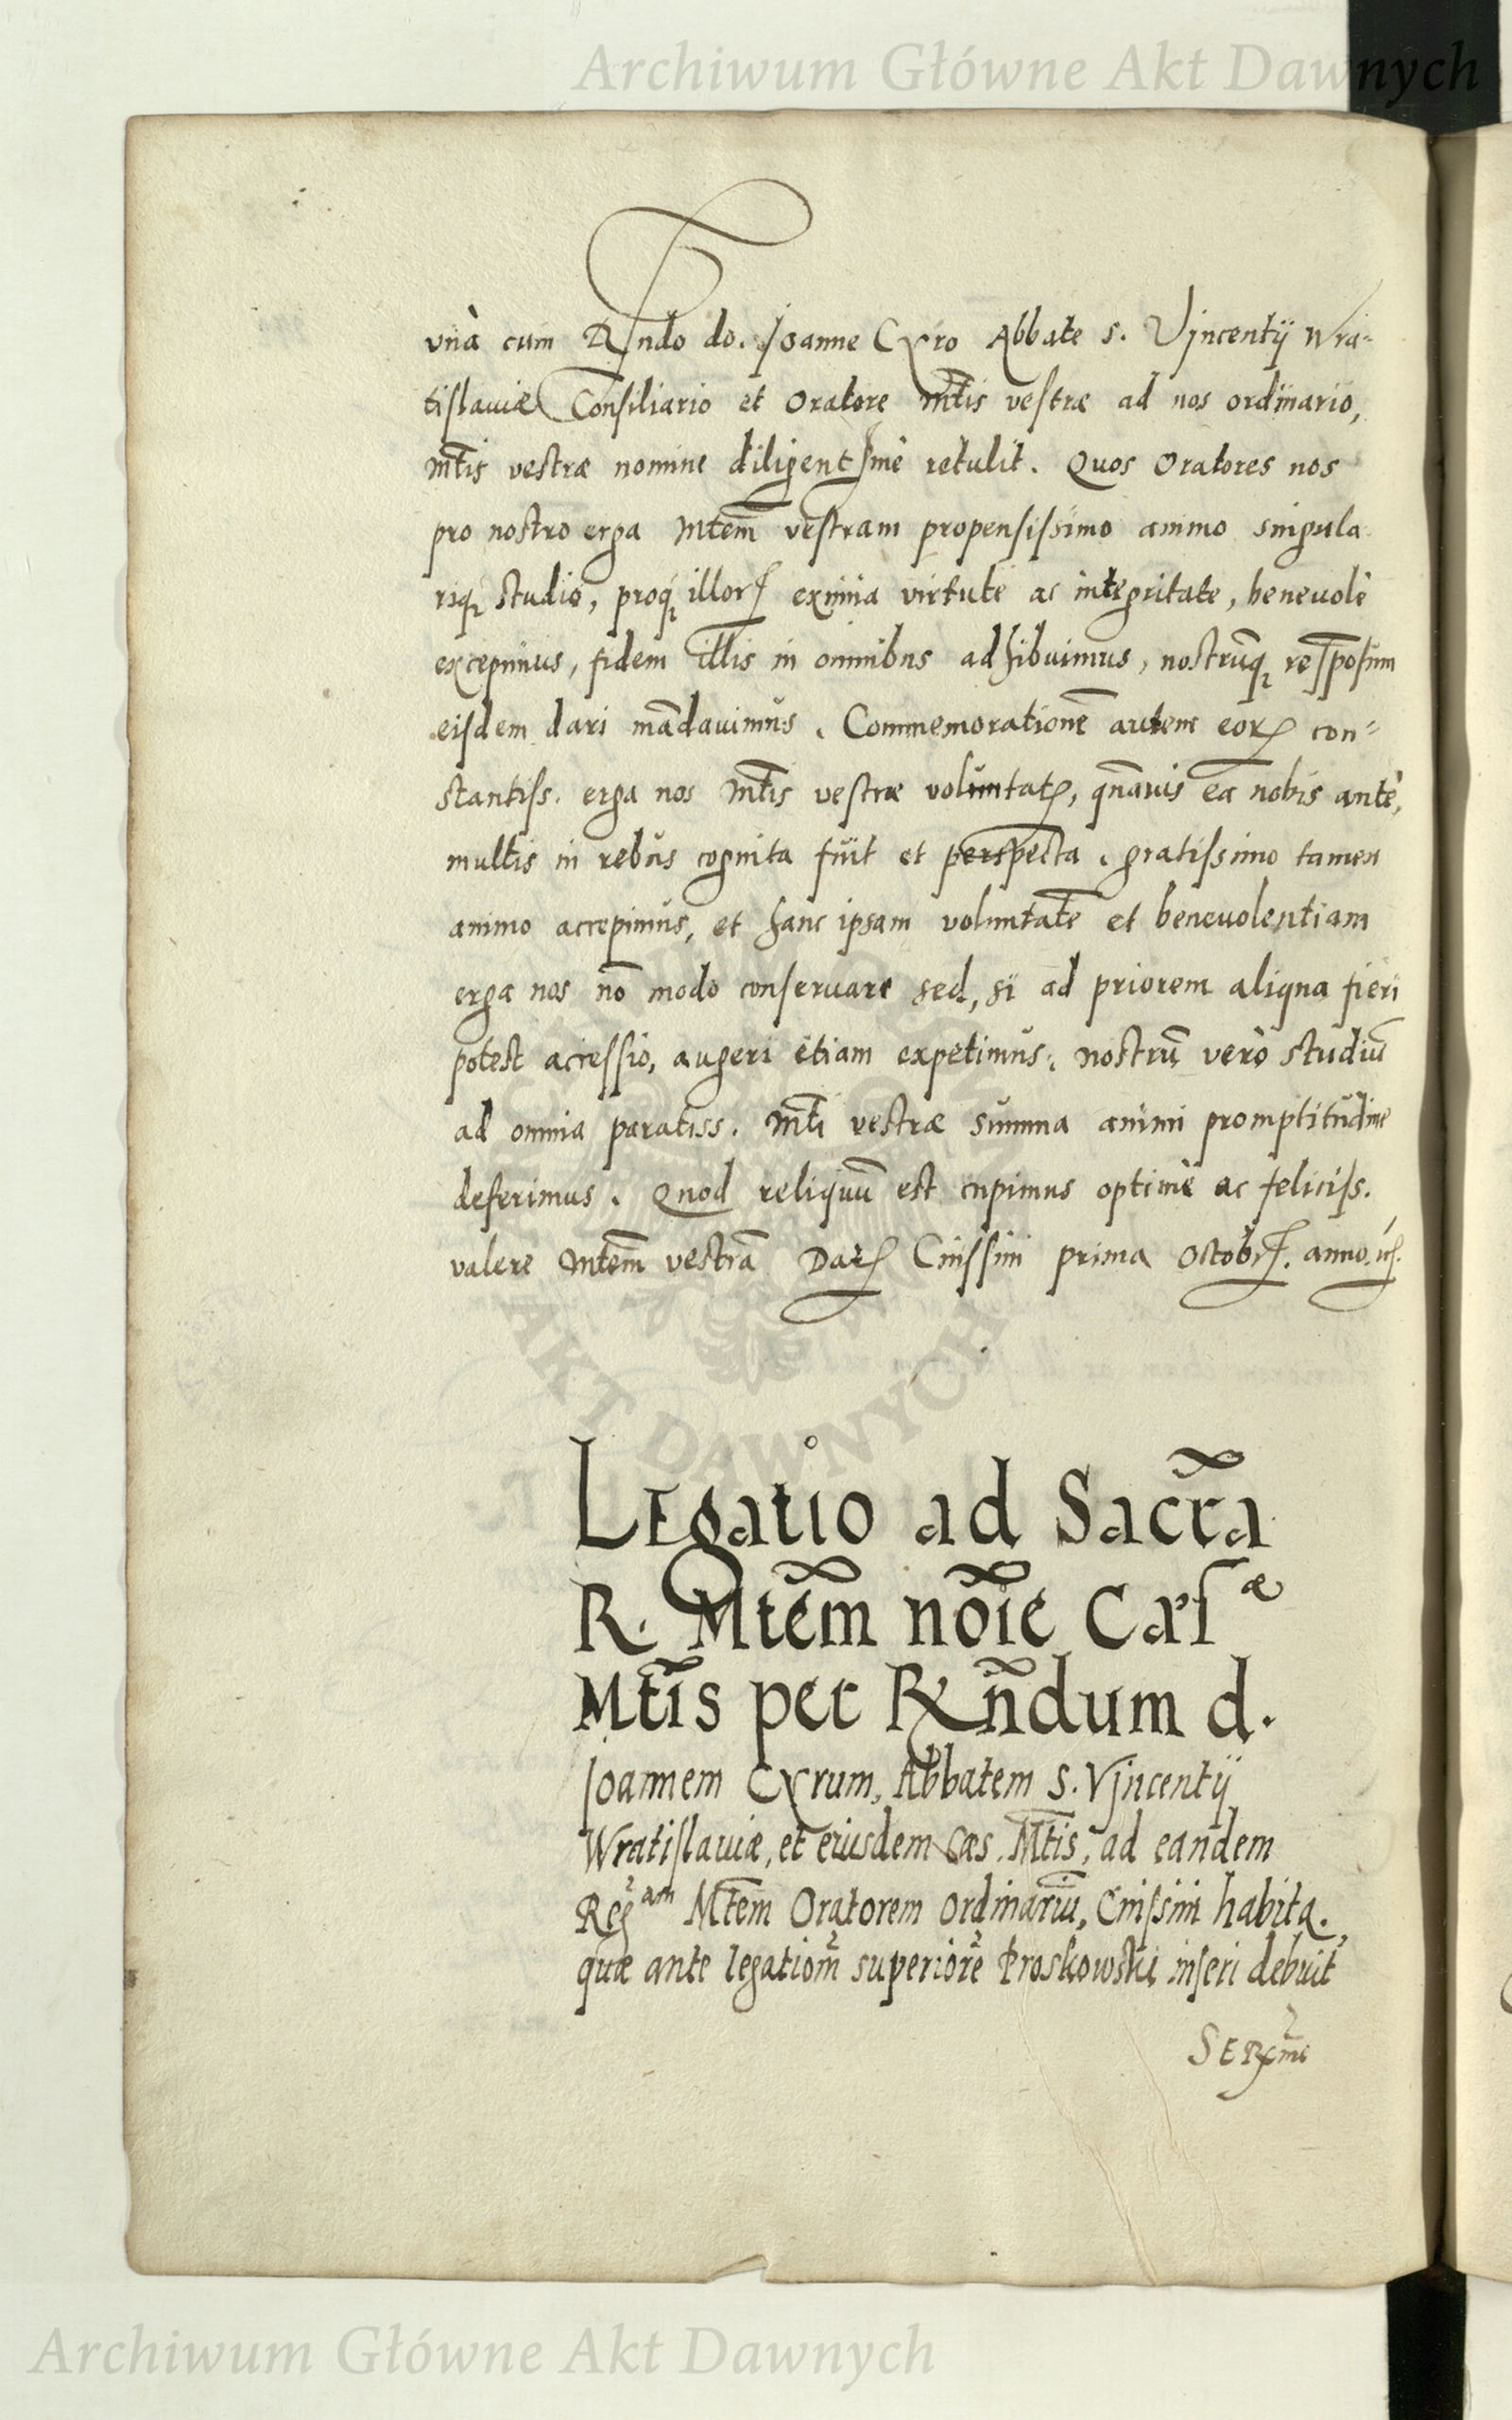 Archiwum Główne Akt Dawnych
vnà cum Rndo do. Joanne Cyro Abbate S. Vincentij Wra-
tislauiæ Consiliario et Oratore Mtis vestræ ad nos ordinario,
Mtis vestræ nomine diligentssmè retulit. Quos Oratores nos
pro nostro erga Mtem vestram propensissimo animo singula
riq; studio, proq; illor exinia virtute ac integritate, beneuolè
excepimus, fidem illis in omnibus adhibuimus, nostrūq; responsum
eisdem dari mādauimus. Commemorationē autem eor con-
stantiss. erga nos Mtis vestræ voluntat, quāuis ea nobis antè,
multis in rebus cognita fuit et perspecta, gratissimo tamen
animo accepimus, et hanc ipsam voluntatē et beneuolentiam
erga nos nō modo conseruare sed, si ad priorem aliqua fieri
potest accessio, augeri etiam expetimus, nostrū verò studiū
ad omnia paratiss. Mti vestræ summa animi promptitudine
deferimus. Quod reliquū est cupimus optimè ac feliciss.
valere Mtem vestrā Dat Cnissini prima Octobr. anno. ut s.
Legatio ad Sacrā
R. Mtēm nōie Cæsæ
Mtis per Rñdum d.
Joannem Cyrum, Abbatem S. Vincentij
Wratislauiæ, et eiusdem Cæs. Mtis, ad eandem
Regam Mtem Oratorem Ordinariū, Cnissini habita.
quæ ante legationē superiorē Proskowski inseri debuit
SERme
AKT DAWNYCH
Archiwum Główne Akt Dawnych